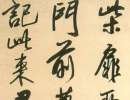 柴扉
門前
記此来